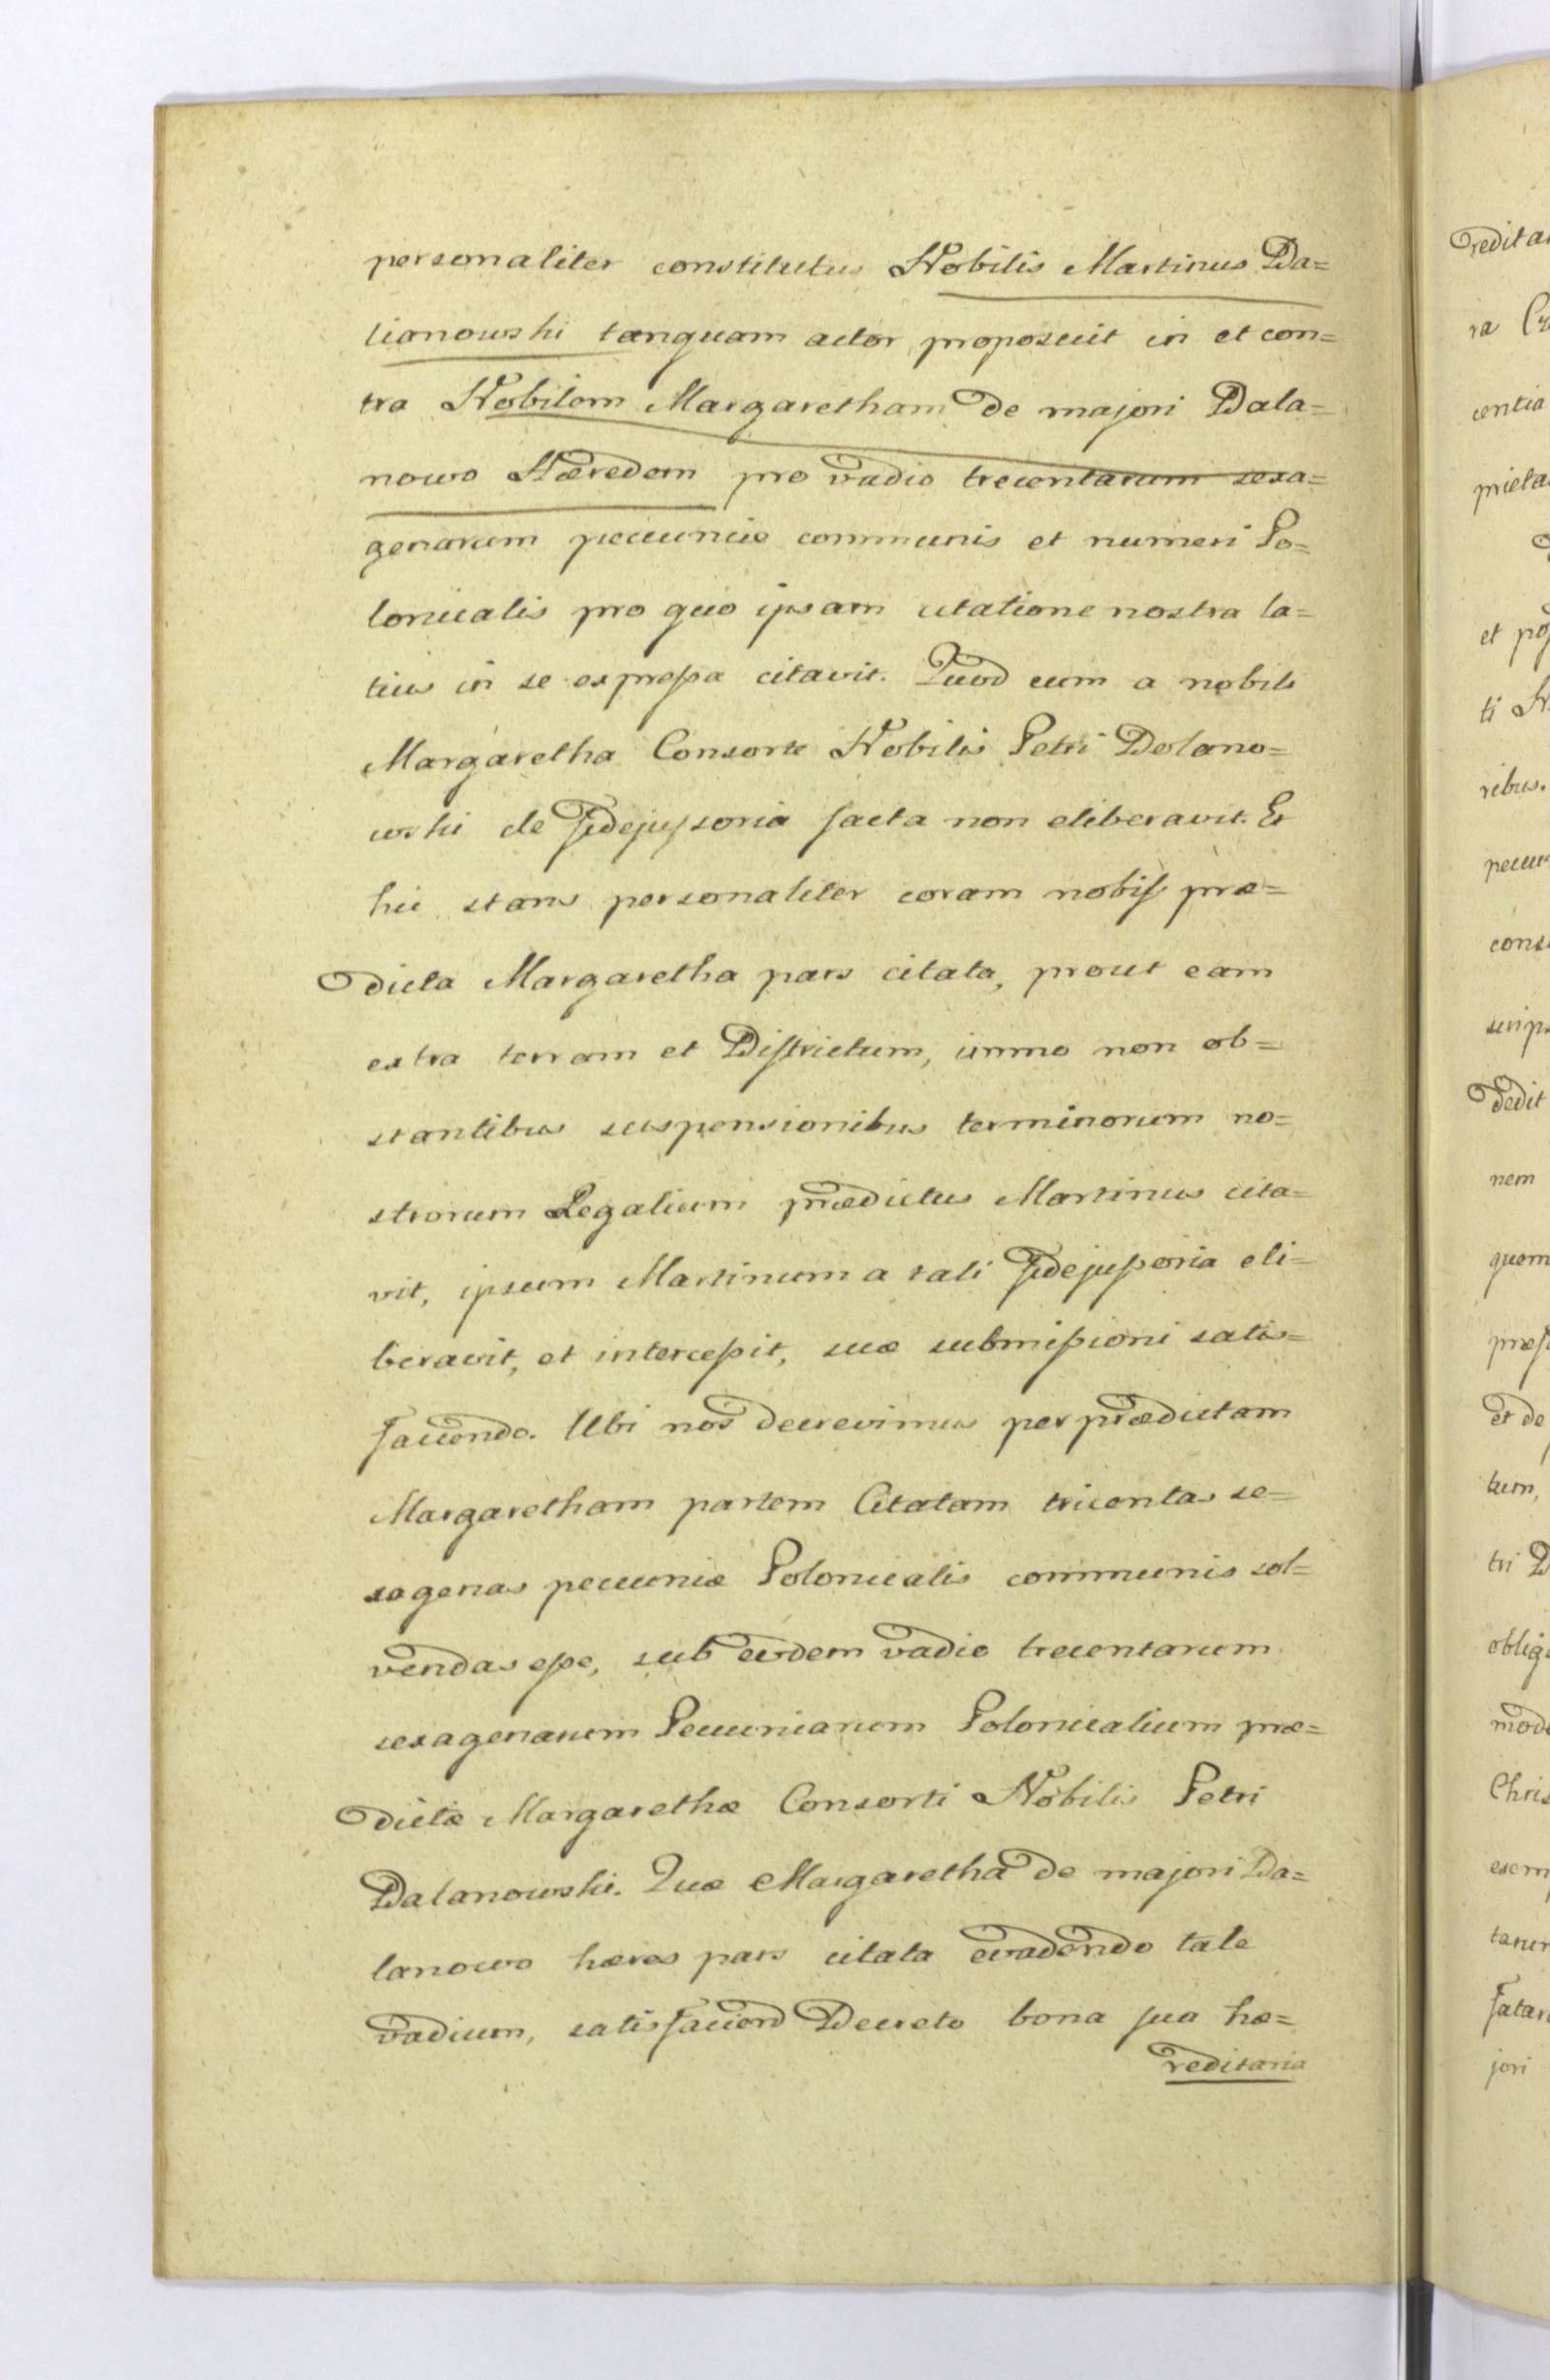 personaliter constitutus Nobilis Martinus Da=
lianowski tanquam actor proposuit in et con=
tra Nobilem Margaretham de majori Dala=
nowo Hæredem pro vadio trecentarum sexa=
genarum pecuniæ communis et numeri Po=
lonicalis pro quo ipsam citatione nostra la=
tius in se expressa citavit. Quod eum a nobili
Margaretha Consorte Nobilis Petri Dolano=
wski de fidejussoria facta non eliberavit. Et
hic stans personaliter coram nobis præ=
dicta Margaretha pars citata, prout eam
extra terram et Districtum, immo non ob=
stantibus suspensionibus terminorum no=
strorum Legalium prædictus Martinus cita=
vit, ipsum Martinum a tali fidejussoria eli=
beravit, et intercessit, suæ submissioni satis=
faciendo. Ubi nos decrevimus per prædictam
Margaretham partem Citatam tricentas se=
xagenas pecuniæ Polonicalis communis sol=
vendas esse, sub eodem vadio trecentarum
sexagenarum Pecuniarum Polonicalium præ=
dictæ Margarethæ Consorti Nobilis Petri
Dalanowski. Quæ Margaretha de majori Da=
lanowo hæres pars citata evadendo tale
vadium, satisfaciend Decreto bona sua hæ=
reditaria